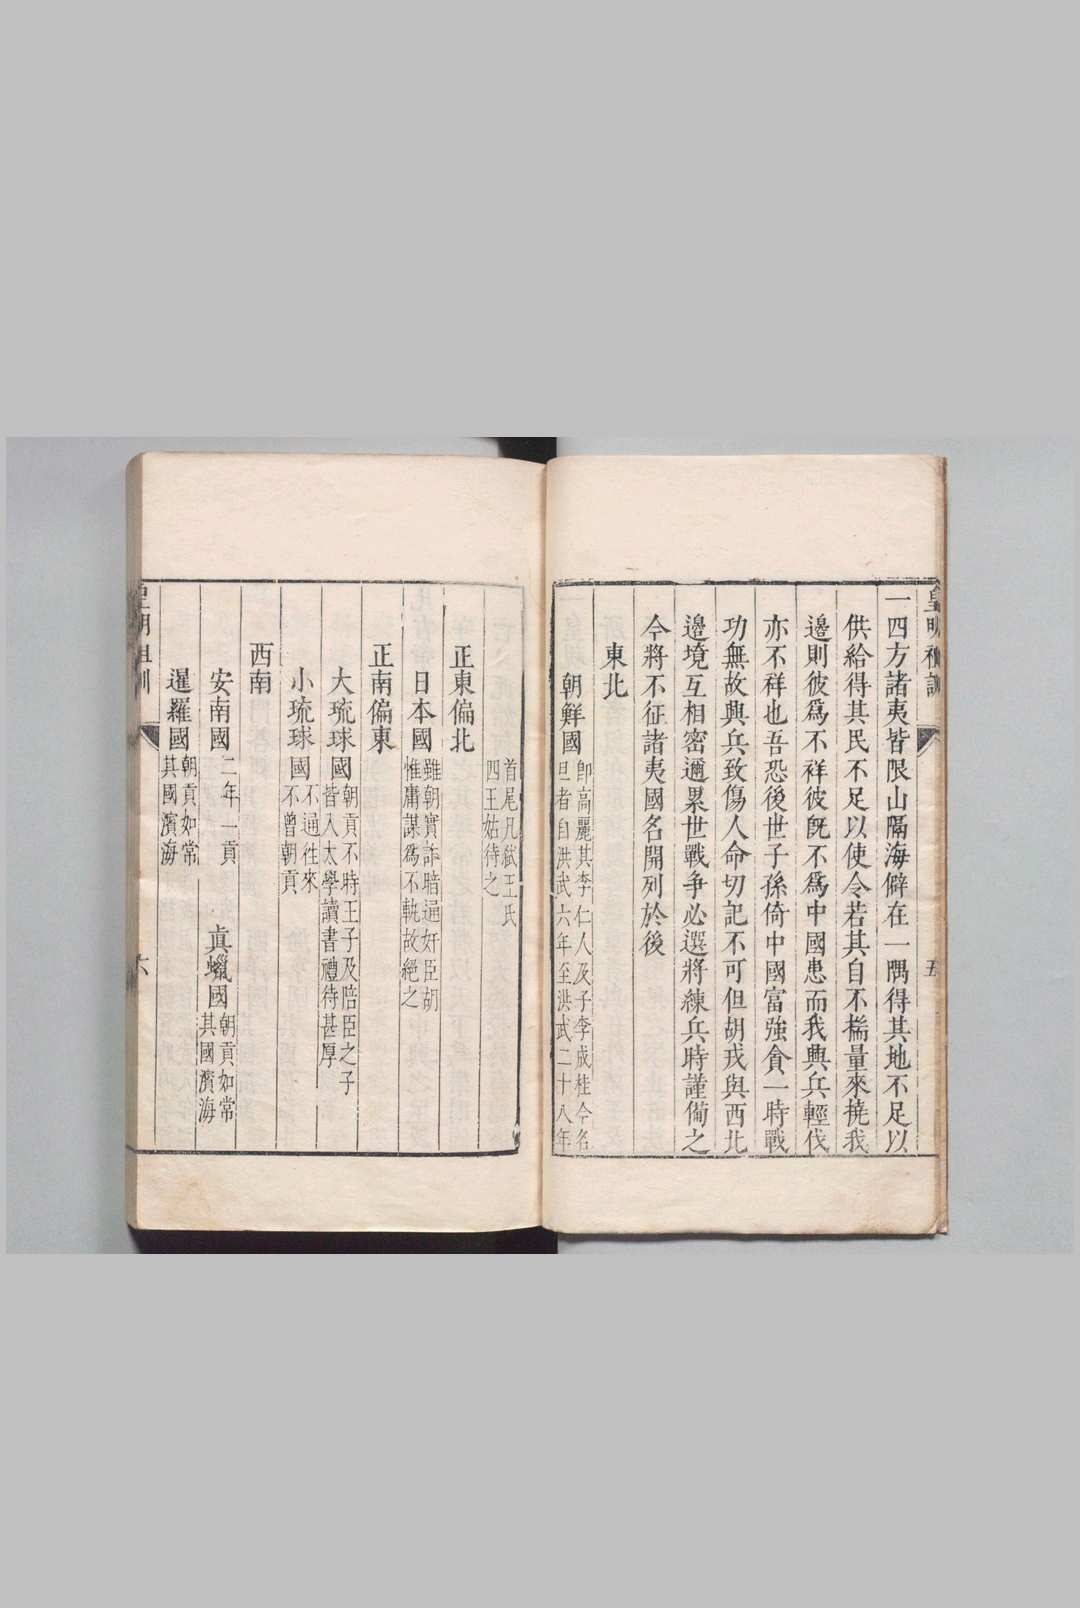 皇明祖訓
五
一四方諸夷皆限山隔海僻在一隅得其地不足以
供給得其民不足以使令若其自不揣量來撓我
邊則彼爲不祥彼旣不爲中國患而我興兵輕伐
亦不祥也吾恐後世子孫倚中國富強貪一時戰
功無故興兵致傷人命切記不可但胡戎與西北
邊境互相密邇累世戰爭必選將練兵時謹備之
今將不征諸夷國名開列於後
東北
朝鮮國
卽高麗其李仁人及子李成桂今名
旦者自洪武六年至洪武二十八年
首尾凡弒王氏
四王姑待之
正東偏北
日本國
雖朝實詐暗通奸臣胡
惟庸謀爲不軌故絕之
正南偏東
大琉球國
朝貢不時王子及陪臣之子
皆入太學讀書禮待甚厚
小琉球國
不通往來
不曾朝貢
西南
安南國
三年一貢
真蠟國
朝貢如常
其國濱海
暹羅國
朝貢如常
其國濱海
皇明祖訓
六